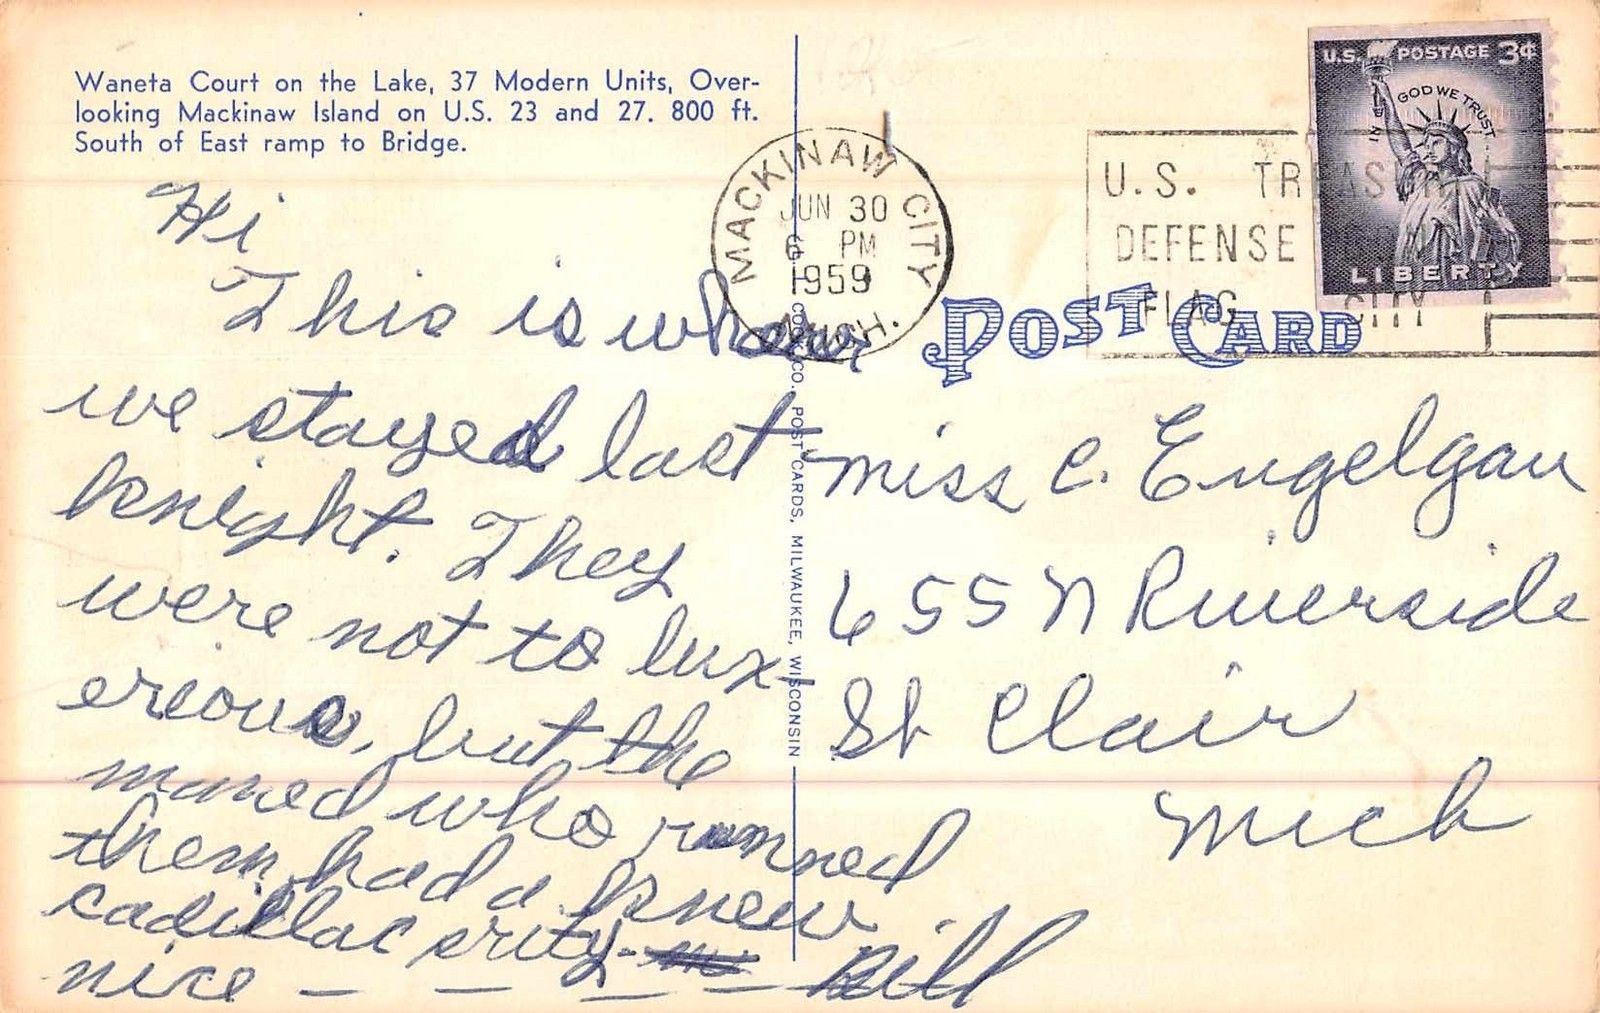 Waneta Court on the Lake, 37 Modern Units, Over-
looking Mackinaw Island on U.S. 23 and 27. 800 ft.
South of East ramp to Bridge.
Hi
This is where
we stayed last
knight. They
were not to lux-
erious, but the
maned who runned
them had a knew
cadillac pritty
nice — — — — Bill
COOK CO. POST CARDS, MILWAUKEE, WISCONSIN
MACKINAW CITY
JUN 30
6 PM
1959
MICH.
U.S. TREAS
DEFENSE
FLAG CITY
U.S. POSTAGE 3¢
IN GOD WE TRUST
LIBERTY
POST CARD
miss C. Engelgau
655 N Riverside
St Clair
Mich